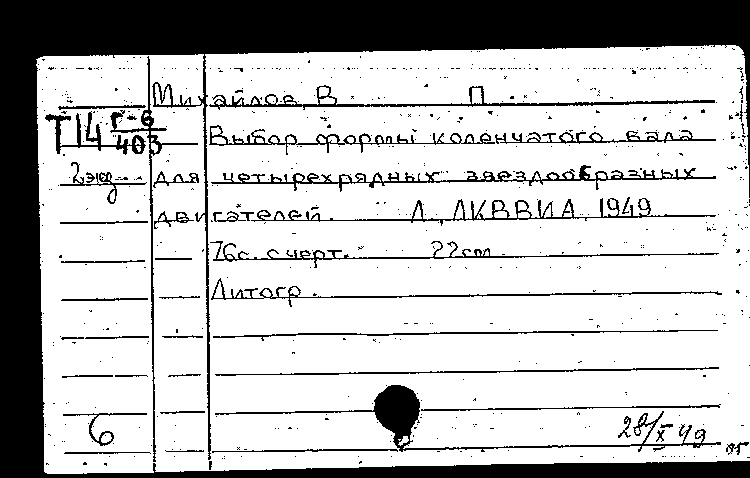 Михайлов, В. П.
Т14 Г-6/403
Выбор формы коленчатого вала
2 экз.
для четырехрядных звездообразных
двигателей. Л., ЛКВВИА, 1949
76с. с черт. 22см
Литогр.
6
28/X 49